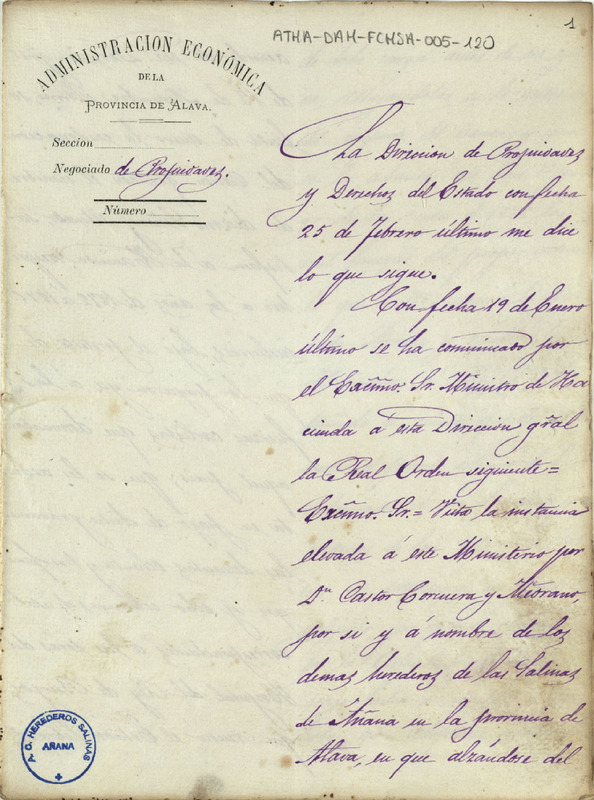 1
ATHA-DAH-FCHSA-005-120
ADMINISTRACION ECONÓMICA
DE LA
PROVINCIA DE ALAVA.
Seccion
Negociado de Propiedades.
Número
La Direcion de Propiedades
y Derechos del Estado con fecha
25 de Febrero último me dice
lo que sigue.
Con fecha 19 de Enero
último se ha comunicado por
el Excmo. Sr. Ministro de Ha
cienda á esta Direccion gral
la Real Orden siguiente=
Excmo. Sr.= Vista la instancia
elevada á este Ministerio por
Dn. Castor Corcuera y Medrano,
por si y á nombre de los
demas herederos de las Salinas
de Añana en la provincia de
Alava, en que alzándose del
A.C. HEREDEROS SALINAS
AÑANA